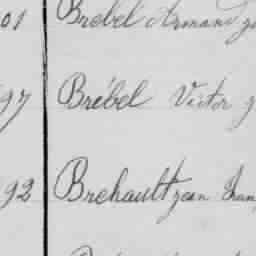 01 Brebel Armand
97 Brébel Victor
92 Brehault Jean